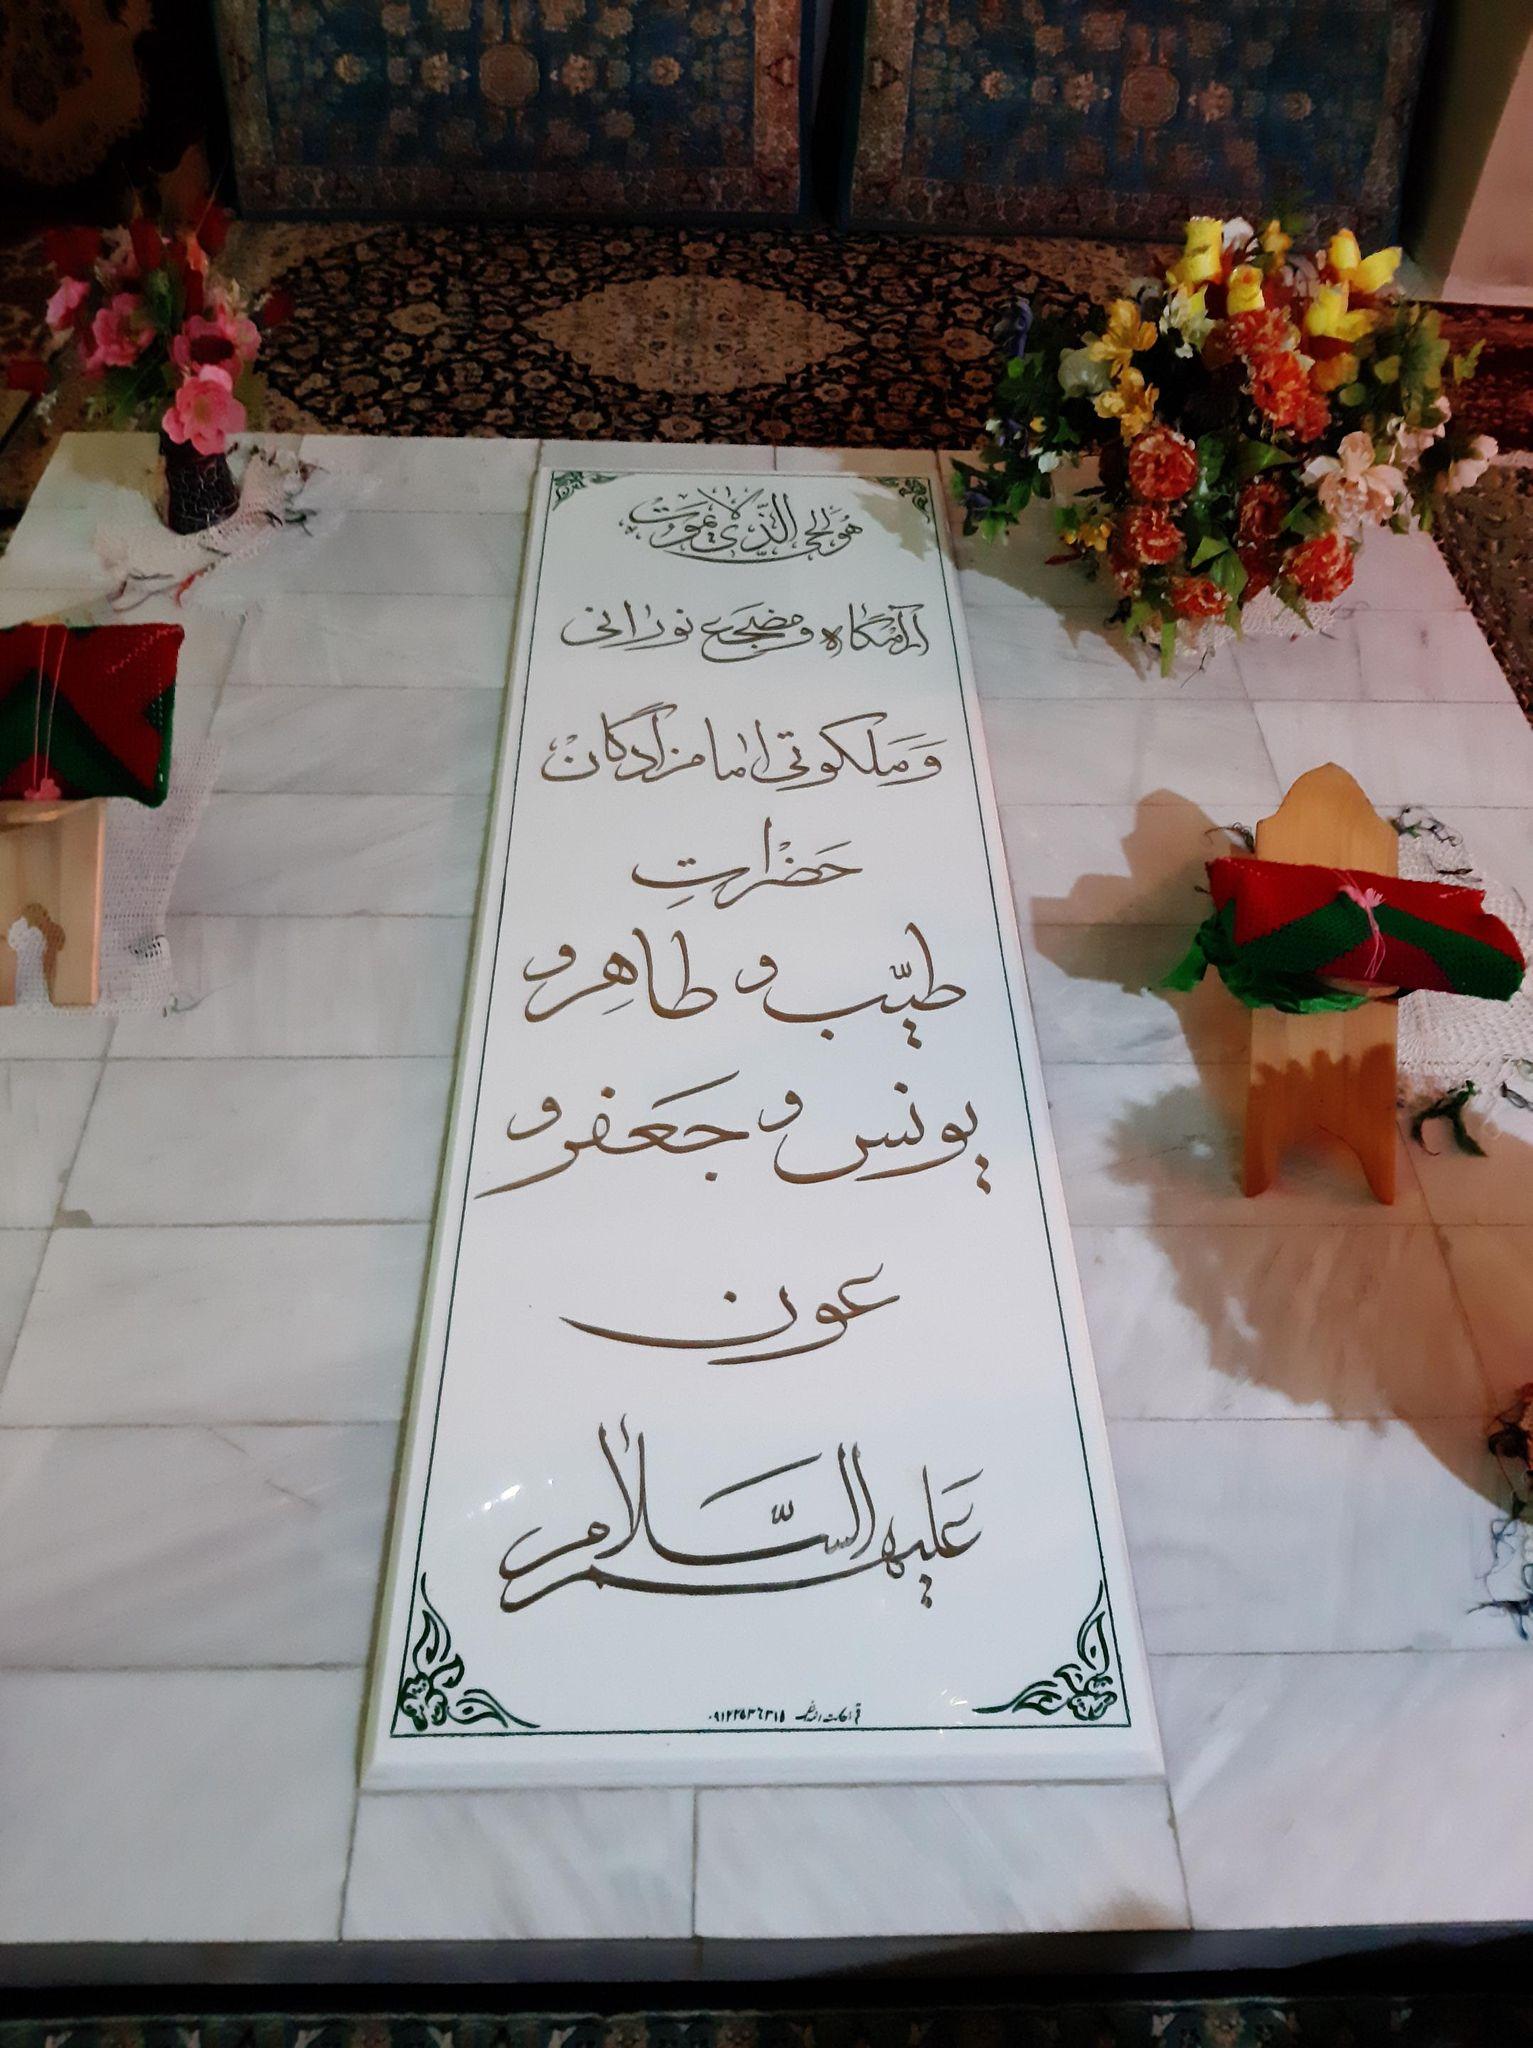 هُوَ الحی الَّذی لا یَموُت
آرامگاه و مضجَع نورانی
وَ مَلکوتی امامزادگان
حَضَراتِ
طیّب و طاهِر و
یونس و جَعفر و
عون
عَلیهم السَّلام
۰۹۱۲۲۵۳۶۳۱۵